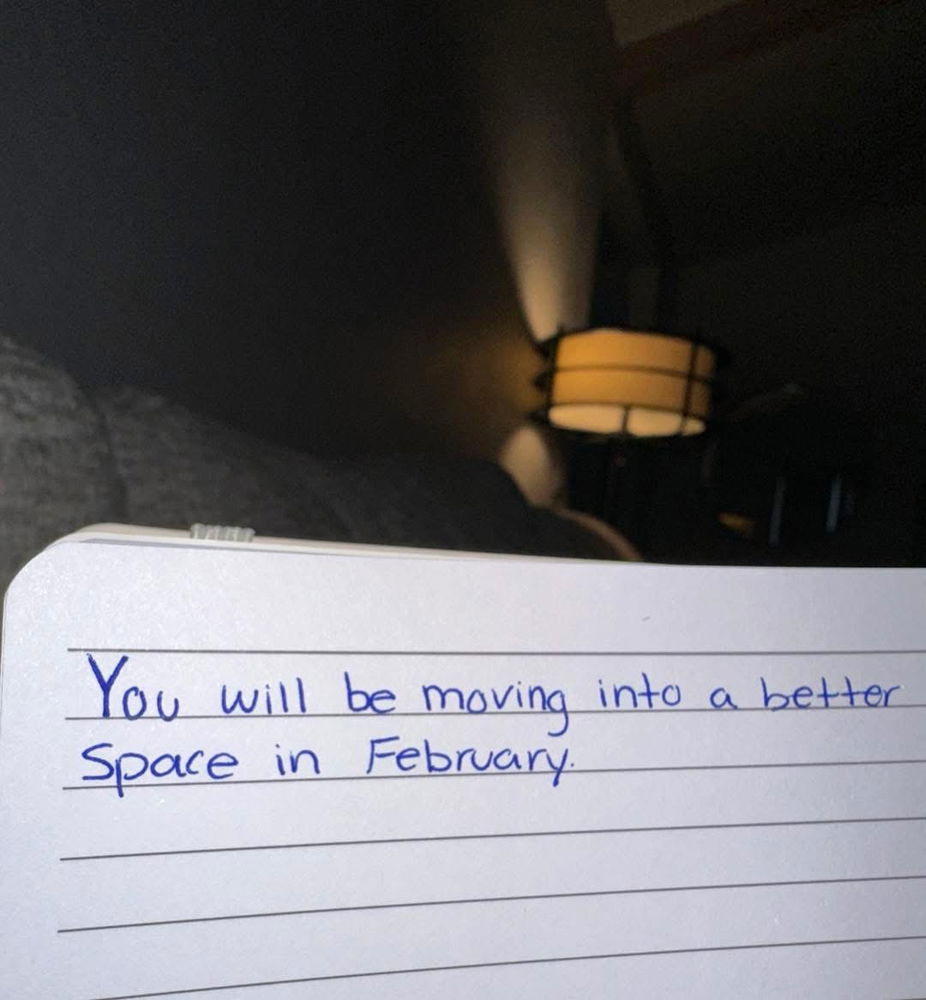 You will be moving into a better
Space in February.